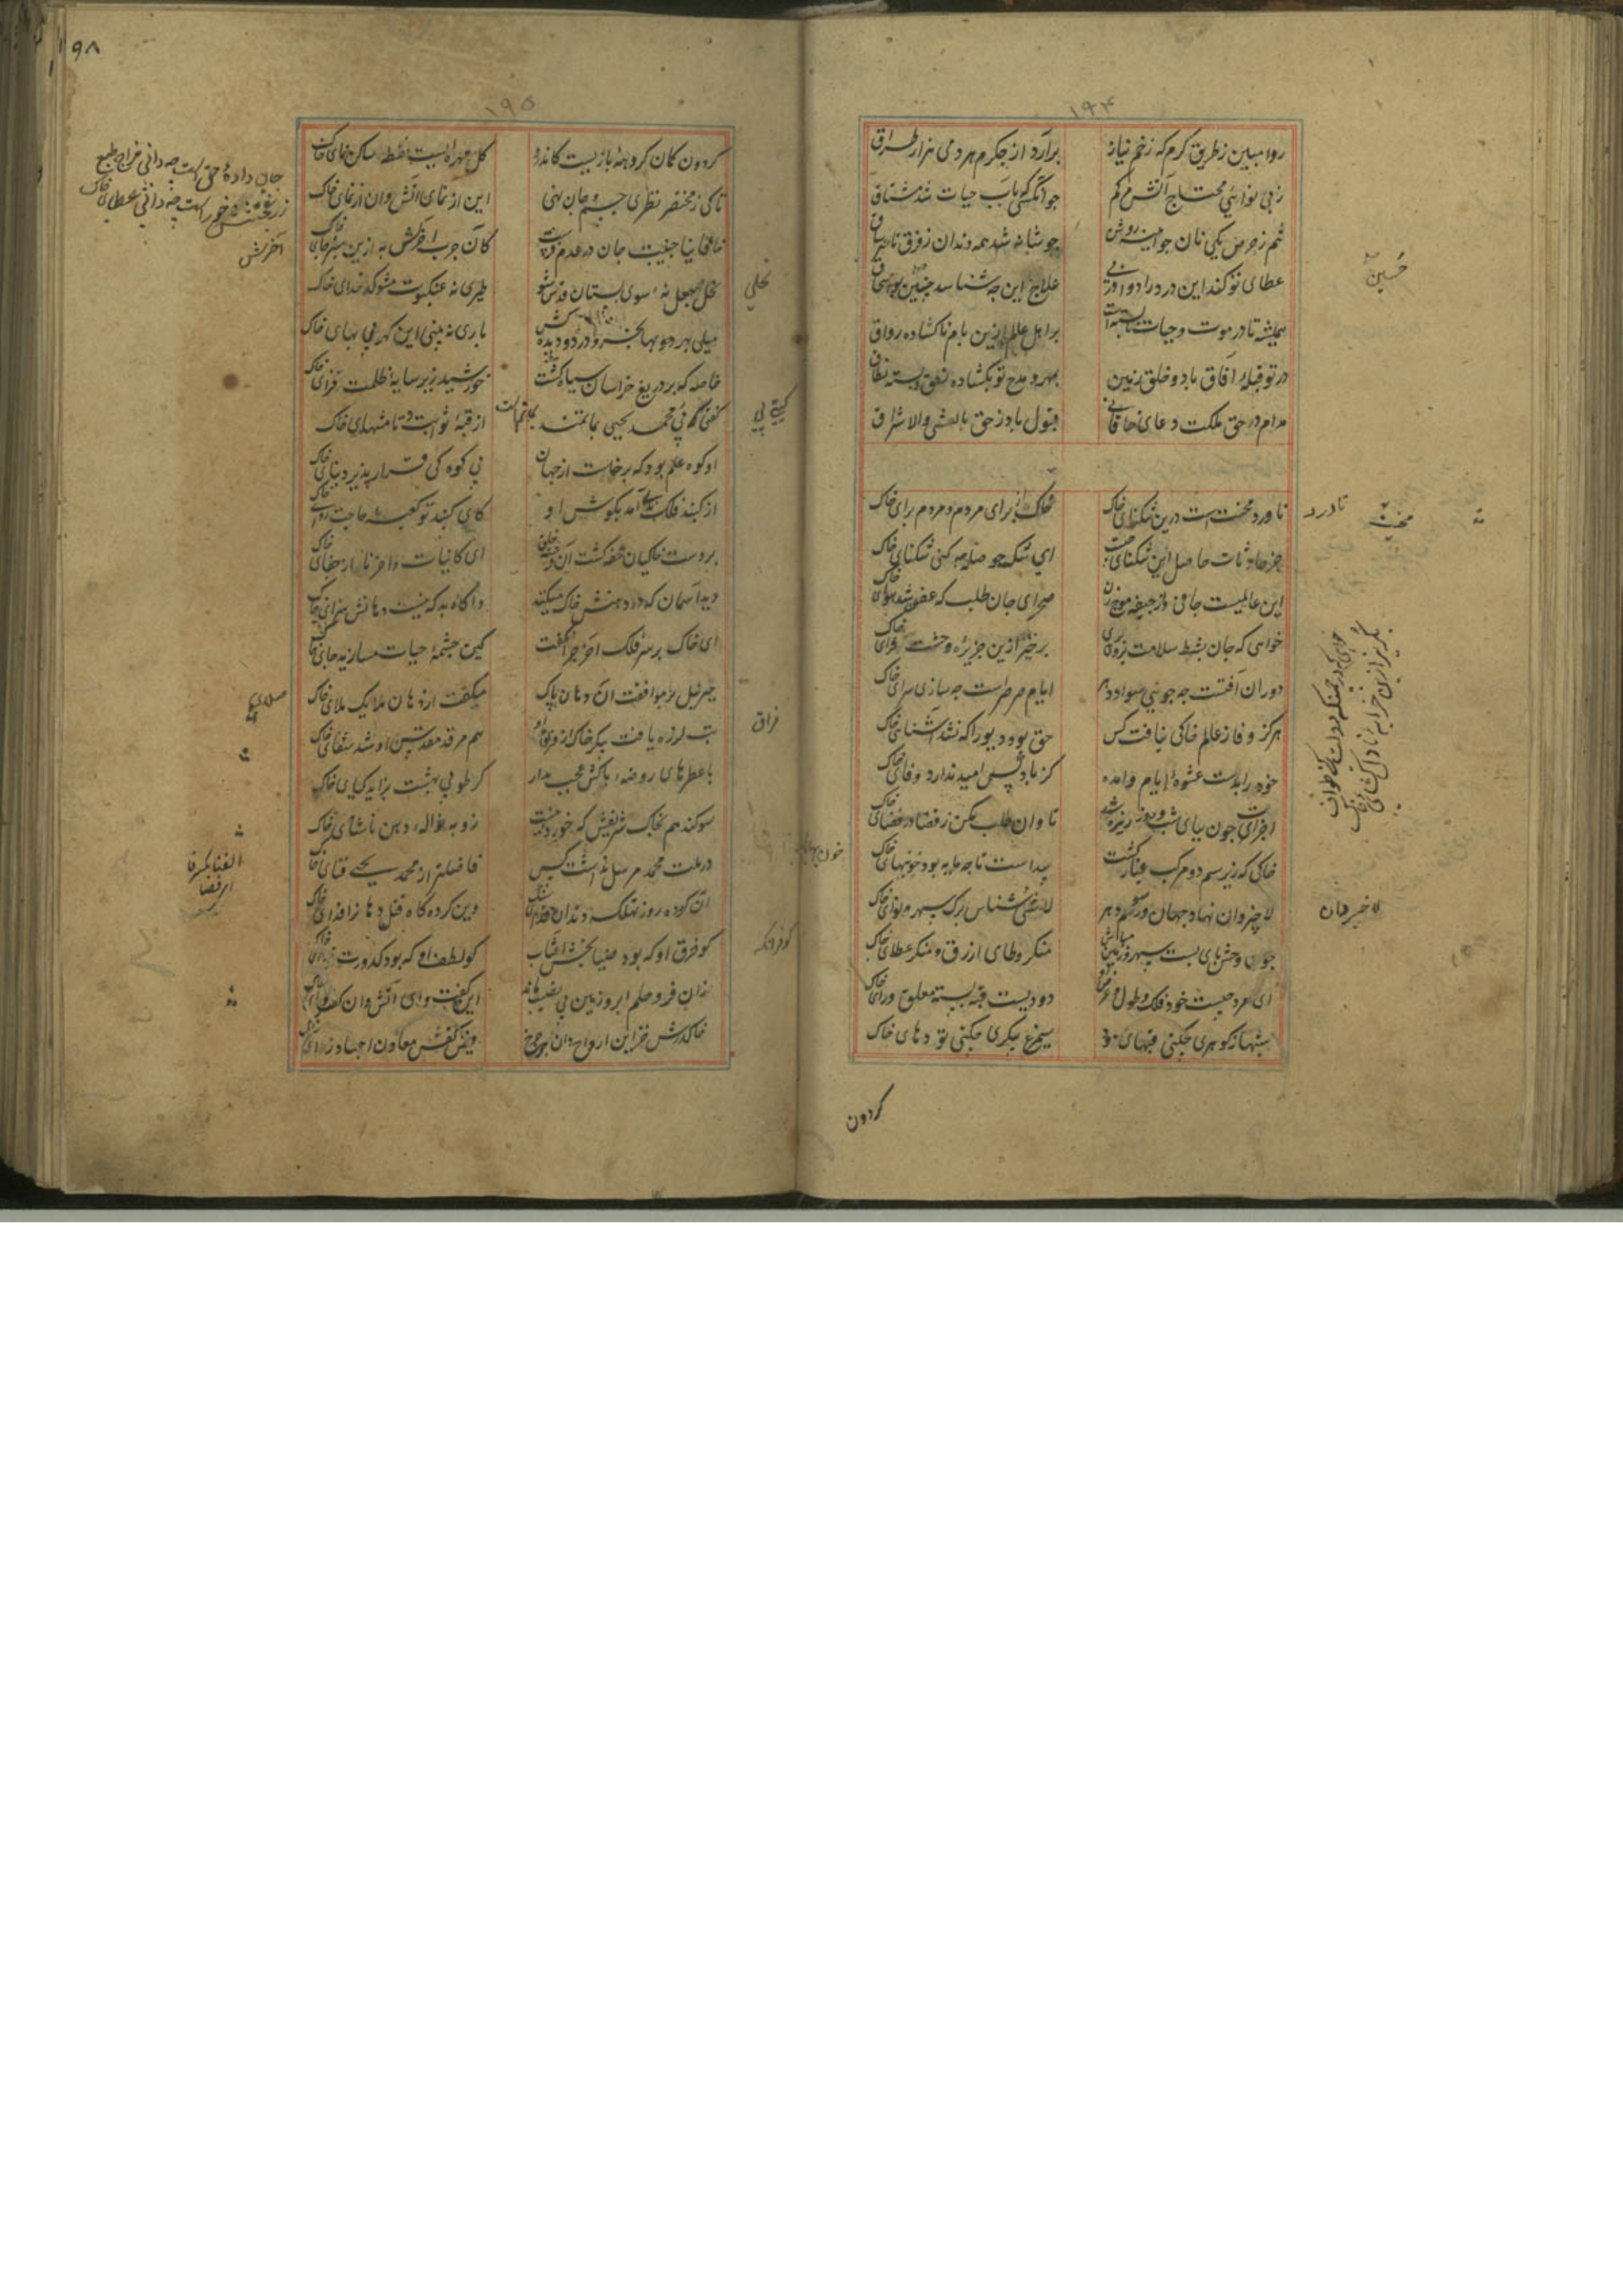 ۱۹۴
روا مبین ز طریق کرم که زخم نیاز
برآرد از جگرم هر دمی هزار طراق
ز بی نوائی محتاج آتشم کم
جو آنکسی بآب حیات شد مشتاق
تنم ز حرص یکی نان جو آینه روشن
چو شانه شد همه دندان ز فرق تا ساق
عطای تو کند این درد را دوا ورنی
علاج این چه شناسد چنین بو اسحاق
همیشه تا در موت و حیات نابسته است
بر اهل عالم ازین بام ناکشاده رواق
در تو قبلهٔ آفاق باد و خلق زمین
بمهر و مدح تو بکشاده نطق و بسته نطاق
مدام در حق ملکت دعای خاقانی
قبول باد ز حق بالعشی والاشراق
ناورد محنت است درین تنکنای خاک
محنت برای مردم و مردم برای خاک
جز حادثات حاصل این تنکنای چیست
ای تنک حوصله چه کنی تنکنای خاک
این عالمیست جافی و از جیفه موج زن
صحرای جان طلب که عفن شد هوای خاک
خواهی که جان بشط سلامت برون بری
برخیز ازین جزیرهٔ وحشت فزای خاک
دوران آفتست چه جویی سواد دهر
ایام صرصراست چه سازی سرای خاک
هرکز وفا ز عالم خاکی نیافت کس
حق بود دیو را که نشد آشنای خاک
خود را بدست عشوهٔ ایام وامده
کز باد کس امید ندارد وفای خاک
اجزات چون بپای شب و روز ریزه شد
تاوان طلب مکن ز قضا در فضای خاک
خاکی که زیر سم دو مرکب غبار کشت
پیداست تا چه مایه بود خونبهای خاک
لاخیر دان نهاد جهان و رسوم دهر
لاشی شناس برک سپهر و نوای خاک
چون وحش پای بست سپهر و زمین مباش
منکر وطای ازرق و منکر عطای خاک
ای مرد چیست خود فلک و طول و عرض او
دودیست قبه بسته معلق ورای خاک
شهباز کوهری چکنی قبهای دود
سیمرغ پیکری چکنی تودهای خاک
کردون
حسین
ناورد
محنت
خونبها
لاخیر دان
۹۸
۱۹۵
کردون کمان کروههٔ بازیست کاندرو
کل مهرهٔ ایست نقطه ساکن نمای خاک
تا کی ز مختصر نظری جسم و جان نهی
این از نمای آتش و آن از نمای خاک
نخل چو جعل نهٔ سوی بستان قدس شو
طیری نه عنکبوت مشو کدخدای خاک
خاصه که بر دریغ خراسان سیاه کشت
خورشید زیر سایهٔ ظلمت فزای خاک
کفتی پی محمد یحیی بماتمند
از قبهٔ ثوابت تا منتهای خاک
او کوه علم بود که برخاست از جهان
بی کوه کی قرار پذیرد بنای خاک
از کنبد فلک ندی آمد بکوش او
کای کنبد تو کعبهٔ حاجت روای خاک
بر دست خاکیان خفه کشت آن
ای کاینات واحزنا از جفای خاک
دید آسمان که در دهنش خاک میکنند
واکاه بد که نیست دهانش سزای خاک
ای خاک بر سر فلک آخر چرا نکفت
کین چشمهٔ حیات مسازید جای خاک
جبرئیل بر موافقت آن دهان پاک
میکفت از دهان ملایک صلای خاک
تب لرزه یافت پیکر خاک از فراق او
هم مرقد مقدس او شد شفای خاک
با عطرهای روضهٔ پاکش عجب مدار
کر طوبی بهشت براید کیای خاک
سوکند هم بخاک شریفش که خورده نیست
زو به نواله دهن ناشتای خاک
در ملت محمد مرسل نداشت کس
فاضلتر از محمد یحیی فنای خاک
آن کرده روز تهلکه دندان فدای سنک
وین کرده کاه قتل دهان را فدای خاک
کو فر او که بود ضیا بخش آفتاب
کو لطف او که بود کدورت زدای خاک
زان فر و حلم ابر و زمین بی نصیب ماند
این کفت وای آتش و آن کفت وای خاک
خاک درش خزاین ارواح دان چرخ
فیض کفش معادن اجساد زای خاک
جان دادهٔ حق است چه دانی مزاج طبع
نخلی
کیتی پی
صلای
فراق
کو فر آنکه